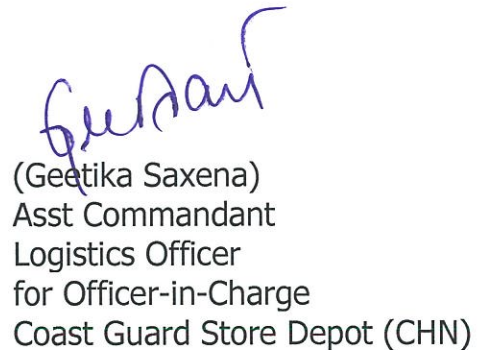 (Geetika Saxena)
Asst Commandant
Logistics Officer
for Officer-in-Charge
Coast Guard Store Depot (CHN)